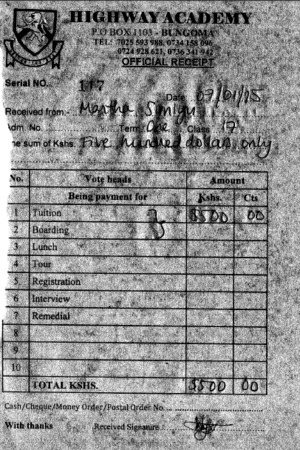 HIGHWAY ACADEMY
P.O BOX 1103 - BUNGOMA
TEL: 7025 593 988, 0734 158 096
0724 928 621, 0736 341 942
OFFICIAL RECEIPT
Serial NO.. 117
Date 07/01/15
Received from:- Martha
Adm No. Term: One Class 17
he sum of Kshs: Five hundred dollars only
No. Vote heads Amount
Being payment for Kshs. Cts
1 Tuition 5500 00
2 Boarding
3 Lunch
4 Tour
5 Registration
6 Interview
7 Remedial
8
9
10
TOTAL KSHS. 5500 00
Cash/Cheque/Money Order/Postal Order No.
With thanks Received Signature